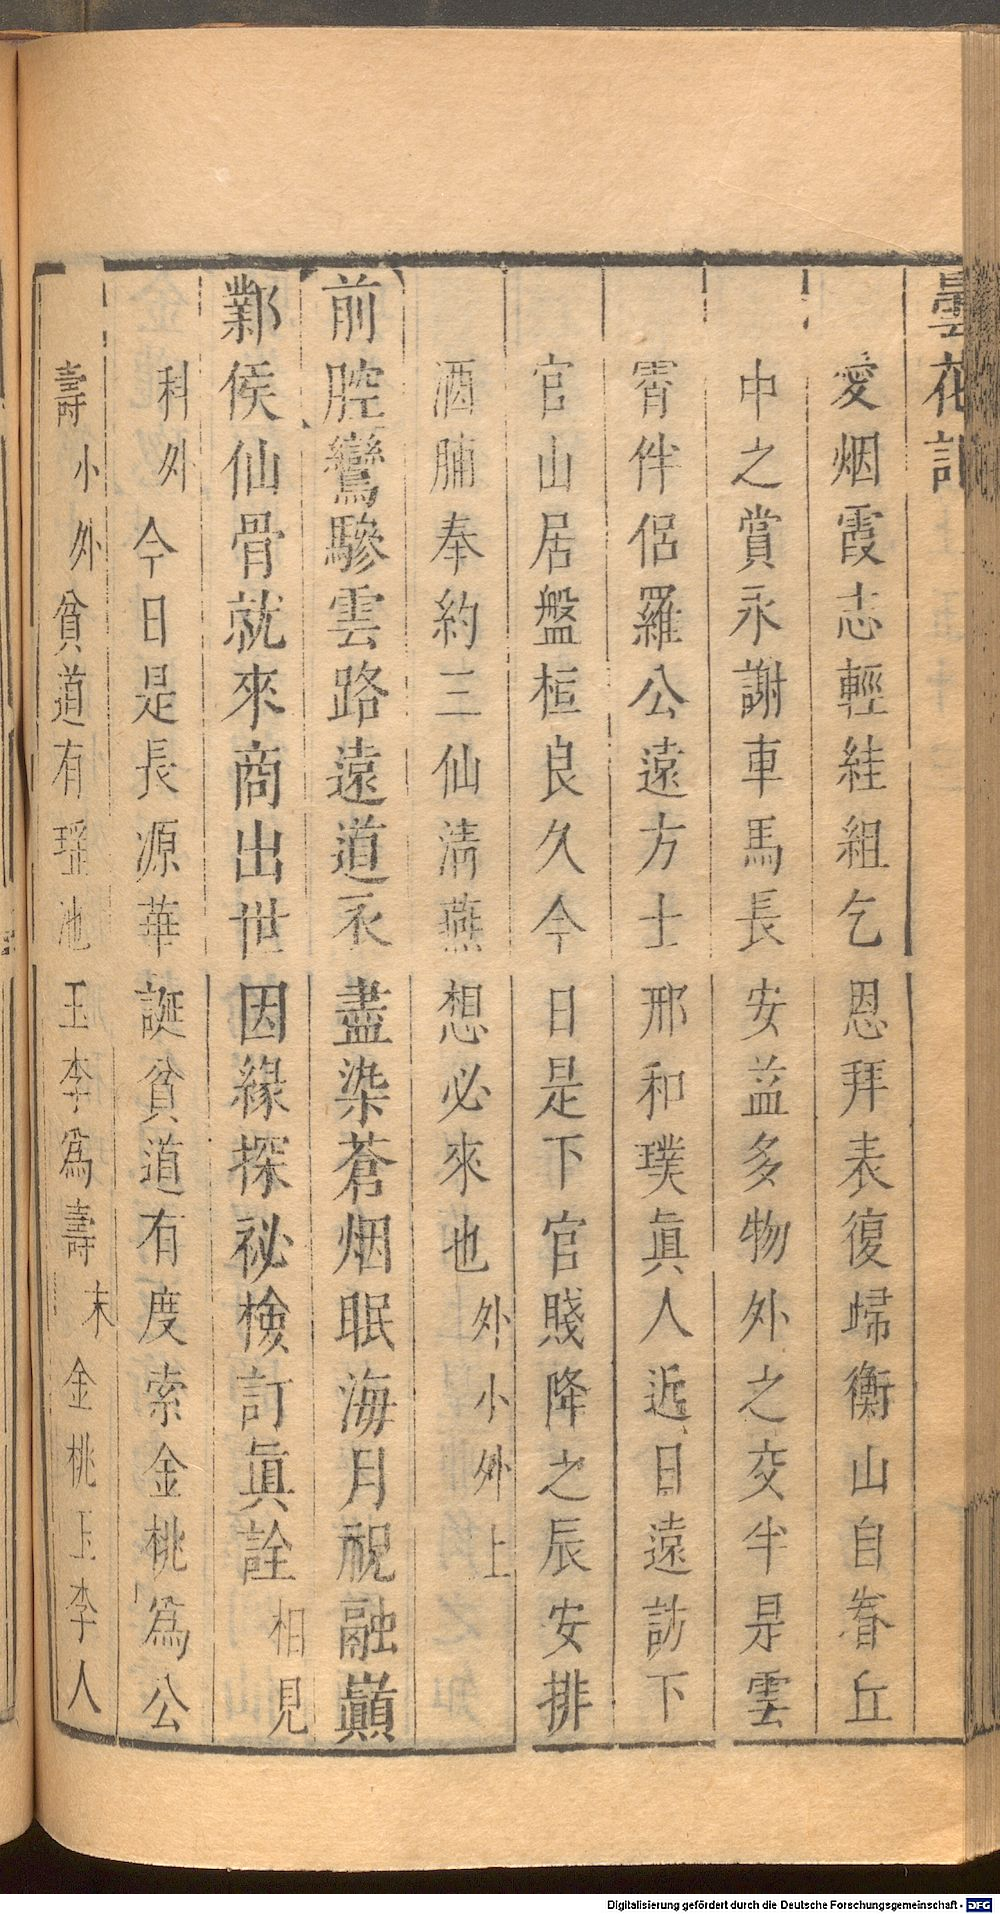 曇花記
愛烟霞志輕絓組乞恩拜表復歸衡山自眷丘
中之賞永謝車馬長安益多物外之交半是雲
霄伴侶羅公遠方士邢和璞眞人近日遠訪下
官山居盤桓良久今日是下官賤降之辰安排
酒脯奉約三仙淸燕想必來也外小外上
前腔鸞驂雲路遠道衣盡染蒼烟眠海月視融巔
鄴侯仙骨就來商出世因緣探祕檢訂眞詮相見
科外今日是長源華誕貧道有度索金桃爲公
壽小外貧道有瑶池玉李爲壽末金桃玉李人
Digitalisierung gefördert durch die Deutsche Forschungsgemeinschaft - DFG